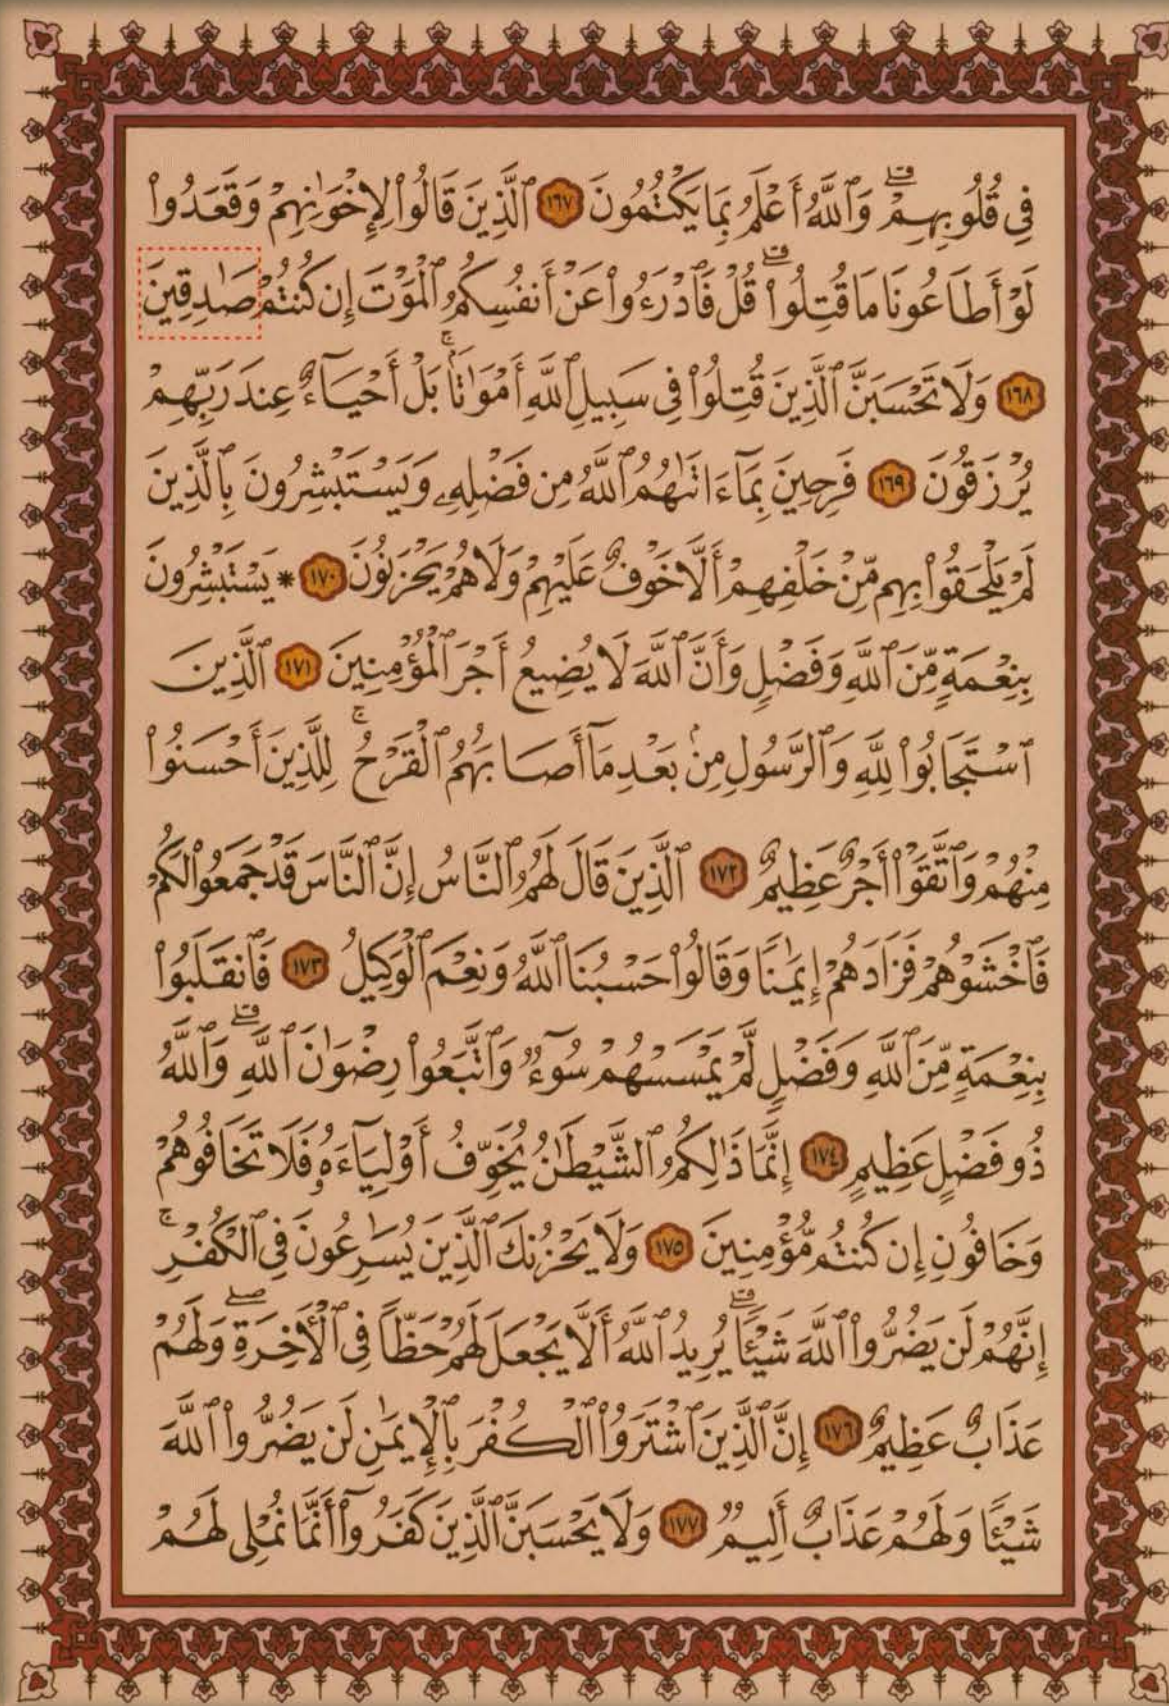 فِى قُلُوبِهِمْ ۗ وَٱللَّهُ أَعْلَمُ بِمَا يَكْتُمُونَ ١٦٧ ٱلَّذِينَ قَالُوا۟ لِإِخْوَٰنِهِمْ وَقَعَدُوا۟
لَوْ أَطَاعُونَا مَا قُتِلُوا۟ ۗ قُلْ فَٱدْرَءُوا۟ عَنْ أَنفُسِكُمُ ٱلْمَوْتَ إِن كُنتُمْ صَٰدِقِينَ
١٦٨ وَلَا تَحْسَبَنَّ ٱلَّذِينَ قُتِلُوا۟ فِى سَبِيلِ ٱللَّهِ أَمْوَٰتًۢا ۚ بَلْ أَحْيَآءٌ عِندَ رَبِّهِمْ
يُرْزَقُونَ ١٦٩ فَرِحِينَ بِمَآ ءَاتَىٰهُمُ ٱللَّهُ مِن فَضْلِهِۦ وَيَسْتَبْشِرُونَ بِٱلَّذِينَ
لَمْ يَلْحَقُوا۟ بِهِم مِّنْ خَلْفِهِمْ أَلَّا خَوْفٌ عَلَيْهِمْ وَلَا هُمْ يَحْزَنُونَ ١٧٠ * يَسْتَبْشِرُونَ
بِنِعْمَةٍ مِّنَ ٱللَّهِ وَفَضْلٍ وَأَنَّ ٱللَّهَ لَا يُضِيعُ أَجْرَ ٱلْمُؤْمِنِينَ ١٧١ ٱلَّذِينَ
ٱسْتَجَابُوا۟ لِلَّهِ وَٱلرَّسُولِ مِنۢ بَعْدِ مَآ أَصَابَهُمُ ٱلْقَرْحُ ۚ لِلَّذِينَ أَحْسَنُوا۟
مِنْهُمْ وَٱتَّقَوْا۟ أَجْرٌ عَظِيمٌ ١٧٢ ٱلَّذِينَ قَالَ لَهُمُ ٱلنَّاسُ إِنَّ ٱلنَّاسَ قَدْ جَمَعُوا۟ لَكُمْ
فَٱخْشَوْهُمْ فَزَادَهُمْ إِيمَٰنًا وَقَالُوا۟ حَسْبُنَا ٱللَّهُ وَنِعْمَ ٱلْوَكِيلُ ١٧٣ فَٱنقَلَبُوا۟
بِنِعْمَةٍ مِّنَ ٱللَّهِ وَفَضْلٍ لَّمْ يَمْسَسْهُمْ سُوٓءٌ وَٱتَّبَعُوا۟ رِضْوَٰنَ ٱللَّهِ ۗ وَٱللَّهُ
ذُو فَضْلٍ عَظِيمٍ ١٧٤ إِنَّمَا ذَٰلِكُمُ ٱلشَّيْطَٰنُ يُخَوِّفُ أَوْلِيَآءَهُۥ فَلَا تَخَافُوهُمْ
وَخَافُونِ إِن كُنتُم مُّؤْمِنِينَ ١٧٥ وَلَا يَحْزُنكَ ٱلَّذِينَ يُسَٰرِعُونَ فِى ٱلْكُفْرِ ۚ
إِنَّهُمْ لَن يَضُرُّوا۟ ٱللَّهَ شَيْـًٔا ۗ يُرِيدُ ٱللَّهُ أَلَّا يَجْعَلَ لَهُمْ حَظًّا فِى ٱلْـَٔاخِرَةِ ۖ وَلَهُمْ
عَذَابٌ عَظِيمٌ ١٧٦ إِنَّ ٱلَّذِينَ ٱشْتَرَوُا۟ ٱلْكُفْرَ بِٱلْإِيمَٰنِ لَن يَضُرُّوا۟ ٱللَّهَ
شَيْـًٔا وَلَهُمْ عَذَابٌ أَلِيمٌ ١٧٧ وَلَا يَحْسَبَنَّ ٱلَّذِينَ كَفَرُوٓا۟ أَنَّمَا نُمْلِى لَهُمْ